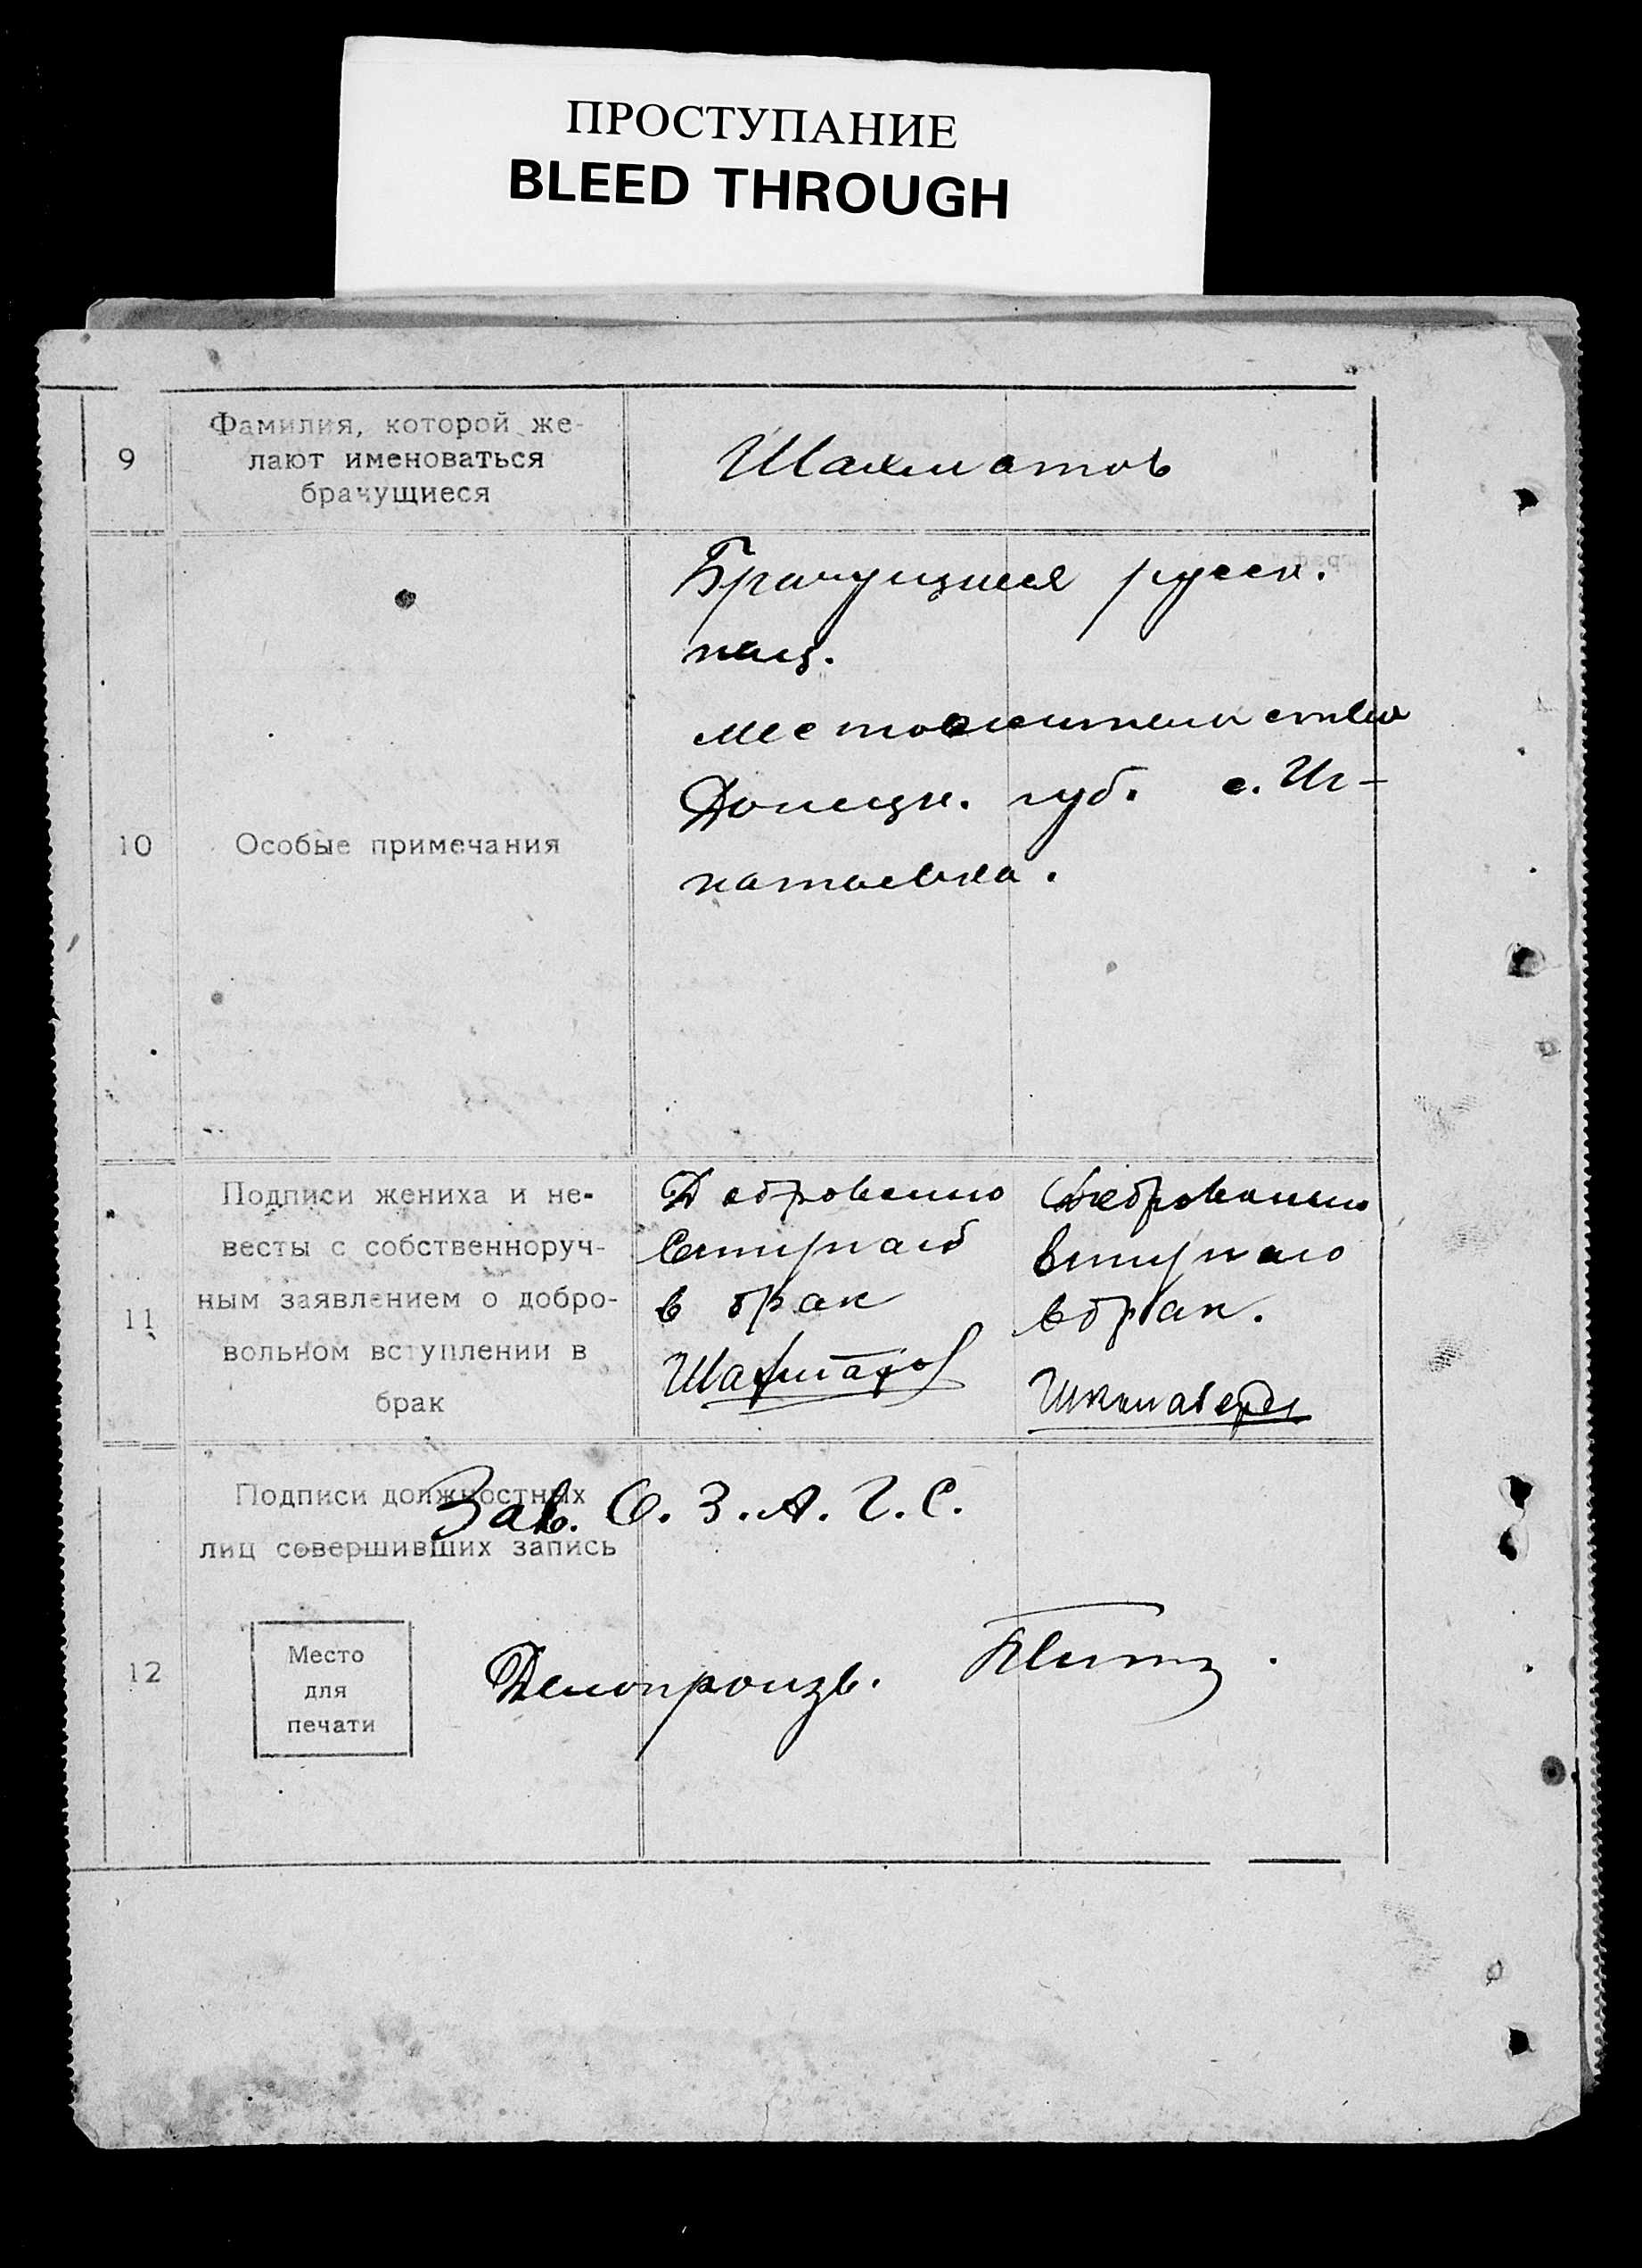 ПРОСТУПАНИЕ
BLEED THROUGH
9
Фамилия, которой же-
лают именоваться
брачущиеся
Шахматов
10
Особые примечания
Брачущиеся русск.
нац.
местожительство
Донецк. губ. с. Иг-
натьевка.
11
Подписи жениха и не-
весты с собственноруч-
ным заявлением о добро-
вольном вступлении в
брак
Доброволно
вступаю
в брак
Шахматов
Доброволно
вступаю
в брак.
12
Подписи должностных
лиц совершивших запись
Зав. О. З. А. Г. С.
Место
для
печати
Делопроизв.